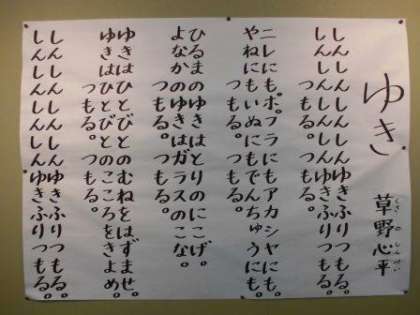 ゆき
草野心平
くさの しんぺい
しんしんしんしん ゆきふりつもる。
しんしんしんしん ゆきふりつもる。
つもる。つもる。
ニレにも。ポプラにもアカシヤにも。
やねにもいぬにもでんちゅうにも。
つもる。つもる。
ひるまのゆきはとりのにこげ。
よなかのゆきはガラスのこな。
つもる。つもる。
ゆきはひとびとのむねをはずませ。
ゆきはひとびとのこころをきよめ。
つもる。つもる。
しんしんしんしん ゆきふりつもる。
しんしんしんしん ゆきふりつもる。